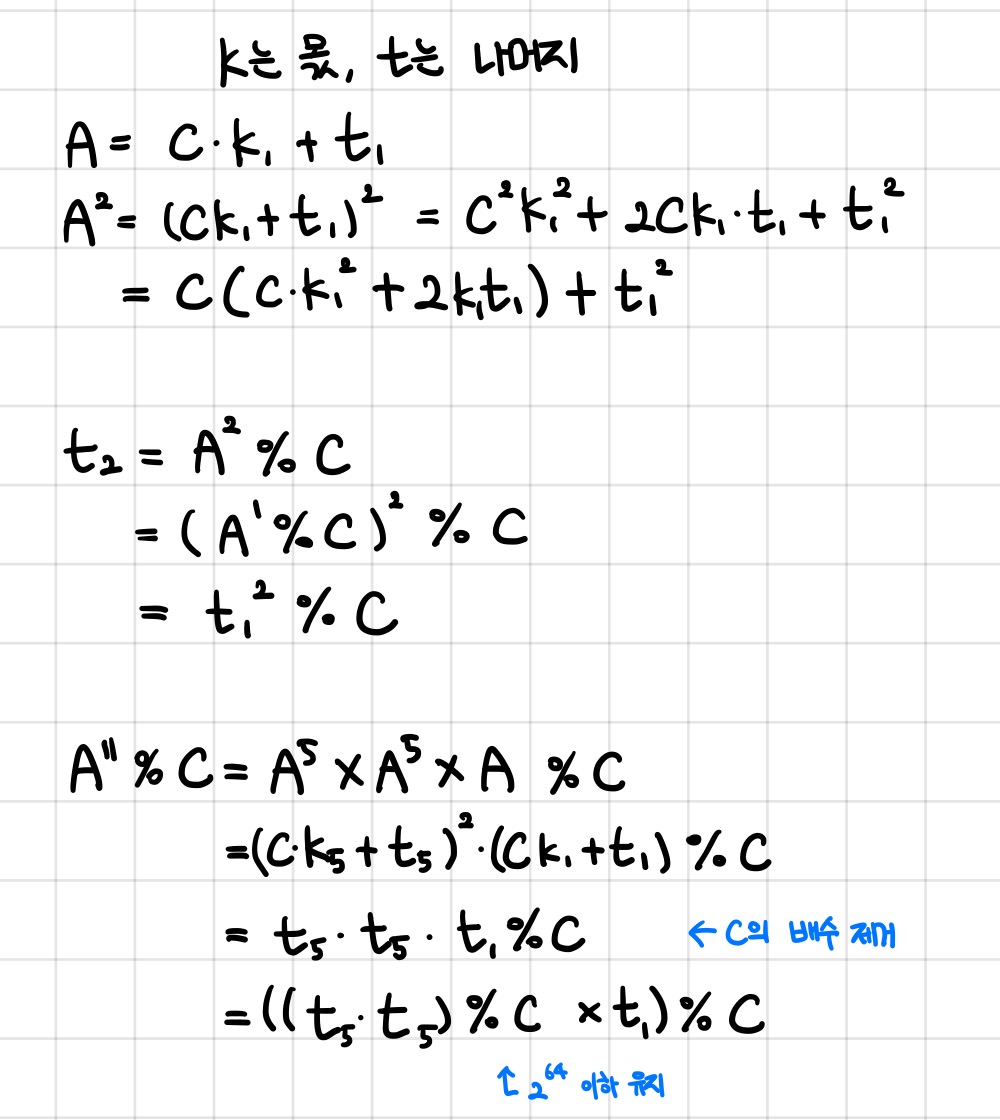 k는 몫, t는 나머지
A = C·k₁ + t₁
A² = (Ck₁+t₁)² = C²k₁² + 2Ck₁·t₁ + t₁²
= C(C·k₁² + 2k₁t₁) + t₁²
t₂ = A² % C
= (A¹ % C)² % C
= t₁² % C
A¹¹ % C = A⁵ × A⁵ × A % C
= (C·k₅ + t₅)²·(Ck₁+t₁) % C
= t₅·t₅·t₁ % C ← C의 배수 제거
= ((t₅·t₅) % C × t₁) % C
↑ 2⁶⁴ 이하 유지